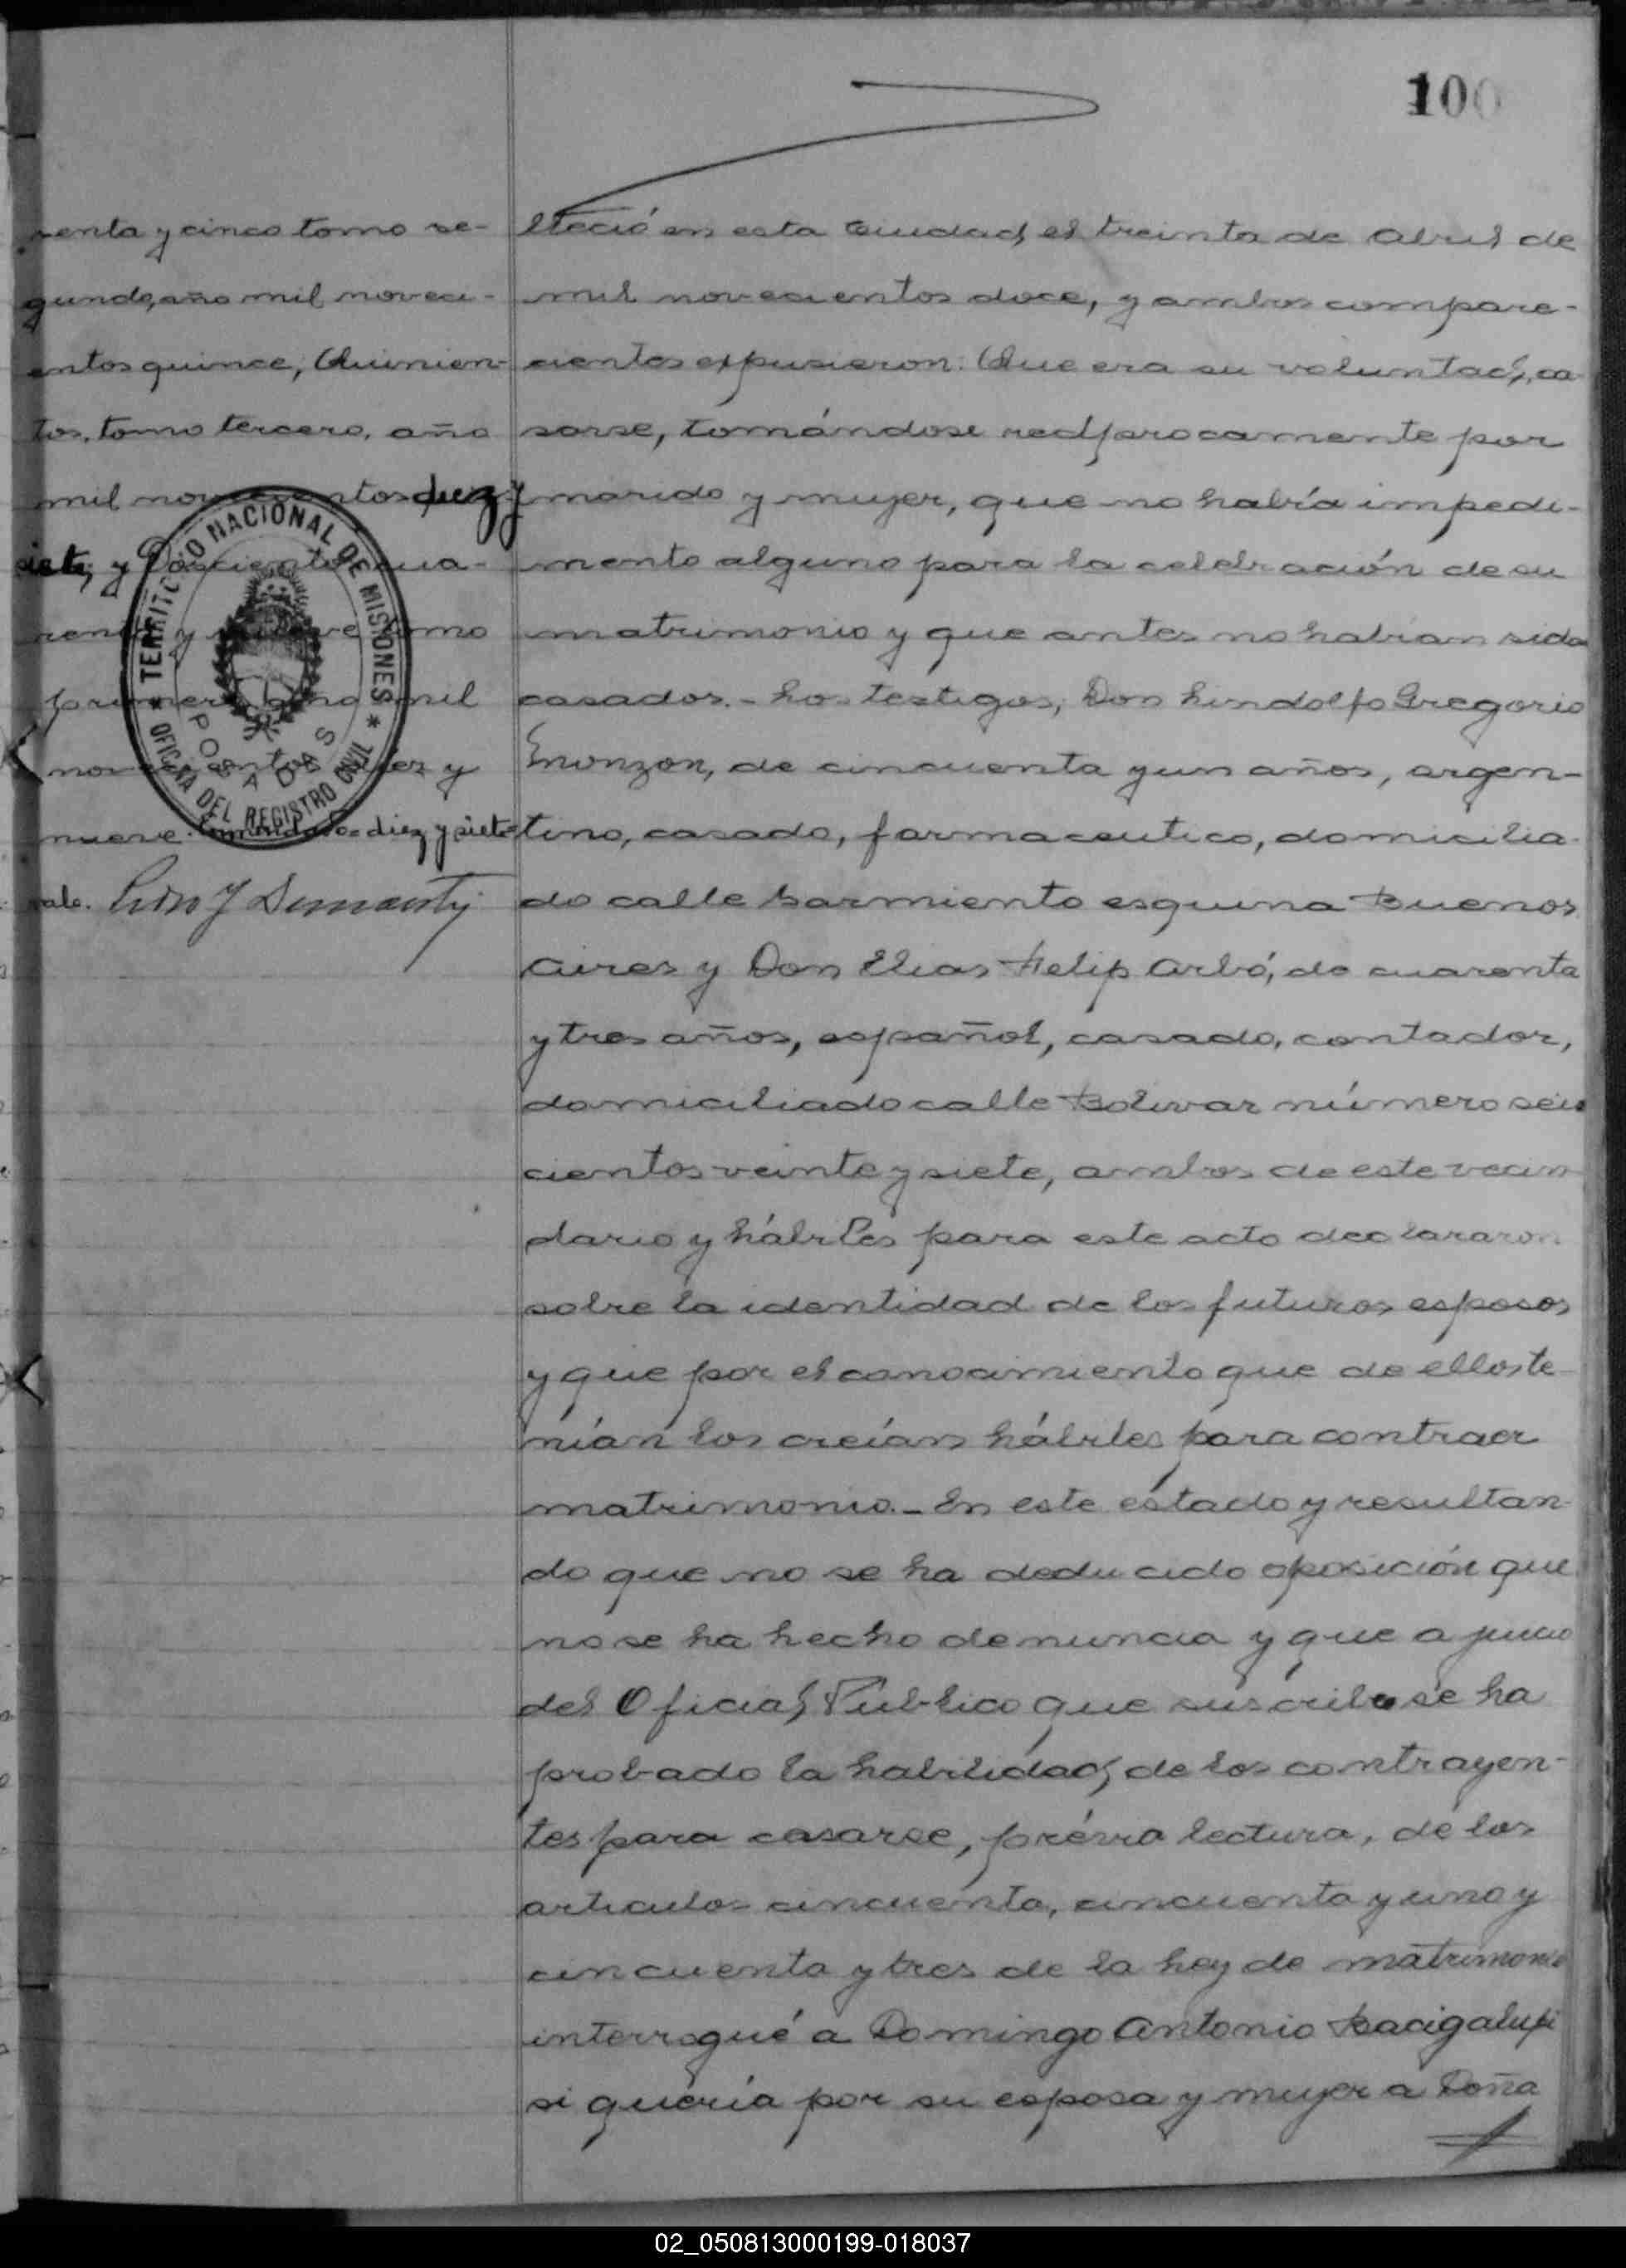 100
senta y cinco tomo se-
gundo, año mil noveci-
entos quince, Quinien-
tos, tomo tercero, año
mil novecientos diez y
siete, y Doscientos cua-
renta y nueve tomo
primero año mil
novecientos diez y
nueve. Enmendado = diez y siete =
vale.
TERRITORIO NACIONAL DE MISIONES
* OFICINA DEL REGISTRO CIVIL *
POSADAS
lleció en esta Ciudad, el treinta de Abril de
mil novecientos doce, y ambos compare-
cientes expusieron: Que era su voluntad, ca-
sarse, tomándose recíprocamente por
marido y mujer, que no había impedi-
mento alguno para la celebración de su
matrimonio y que antes no habían sido
casados. - Los testigos, Don Lindolfo Gregorio
Enonzon, de cincuenta y un años, argen-
tino, casado, farmaceutico, domicilia-
do calle Sarmiento esquina Buenos
Aires y Don Elias Felip Arbó, de cuarenta
y tres años, español, casado, contador,
domiciliado calle Bolivar número seis
cientos veinte y siete, ambos de este vecin
dario y hábiles para este acto declararon
sobre la identidad de los futuros esposos
y que por el conocimiento que de ellos te-
nían los creían hábiles para contraer
matrimonio. - En este estado y resultan-
do que no se ha deducido oposición que
no se ha hecho denuncia y que a juicio
del Oficial Público que suscribe se ha
probado la habilidad, de los contrayen-
tes para casarse, prévia lectura, de los
articulos cincuenta, cincuenta y uno y
cincuenta y tres de la Ley de matrimonio
interrogué a Domingo Antonio Bacigalupi
si quería por su esposa y mujer a Doña
02_050813000199-018037